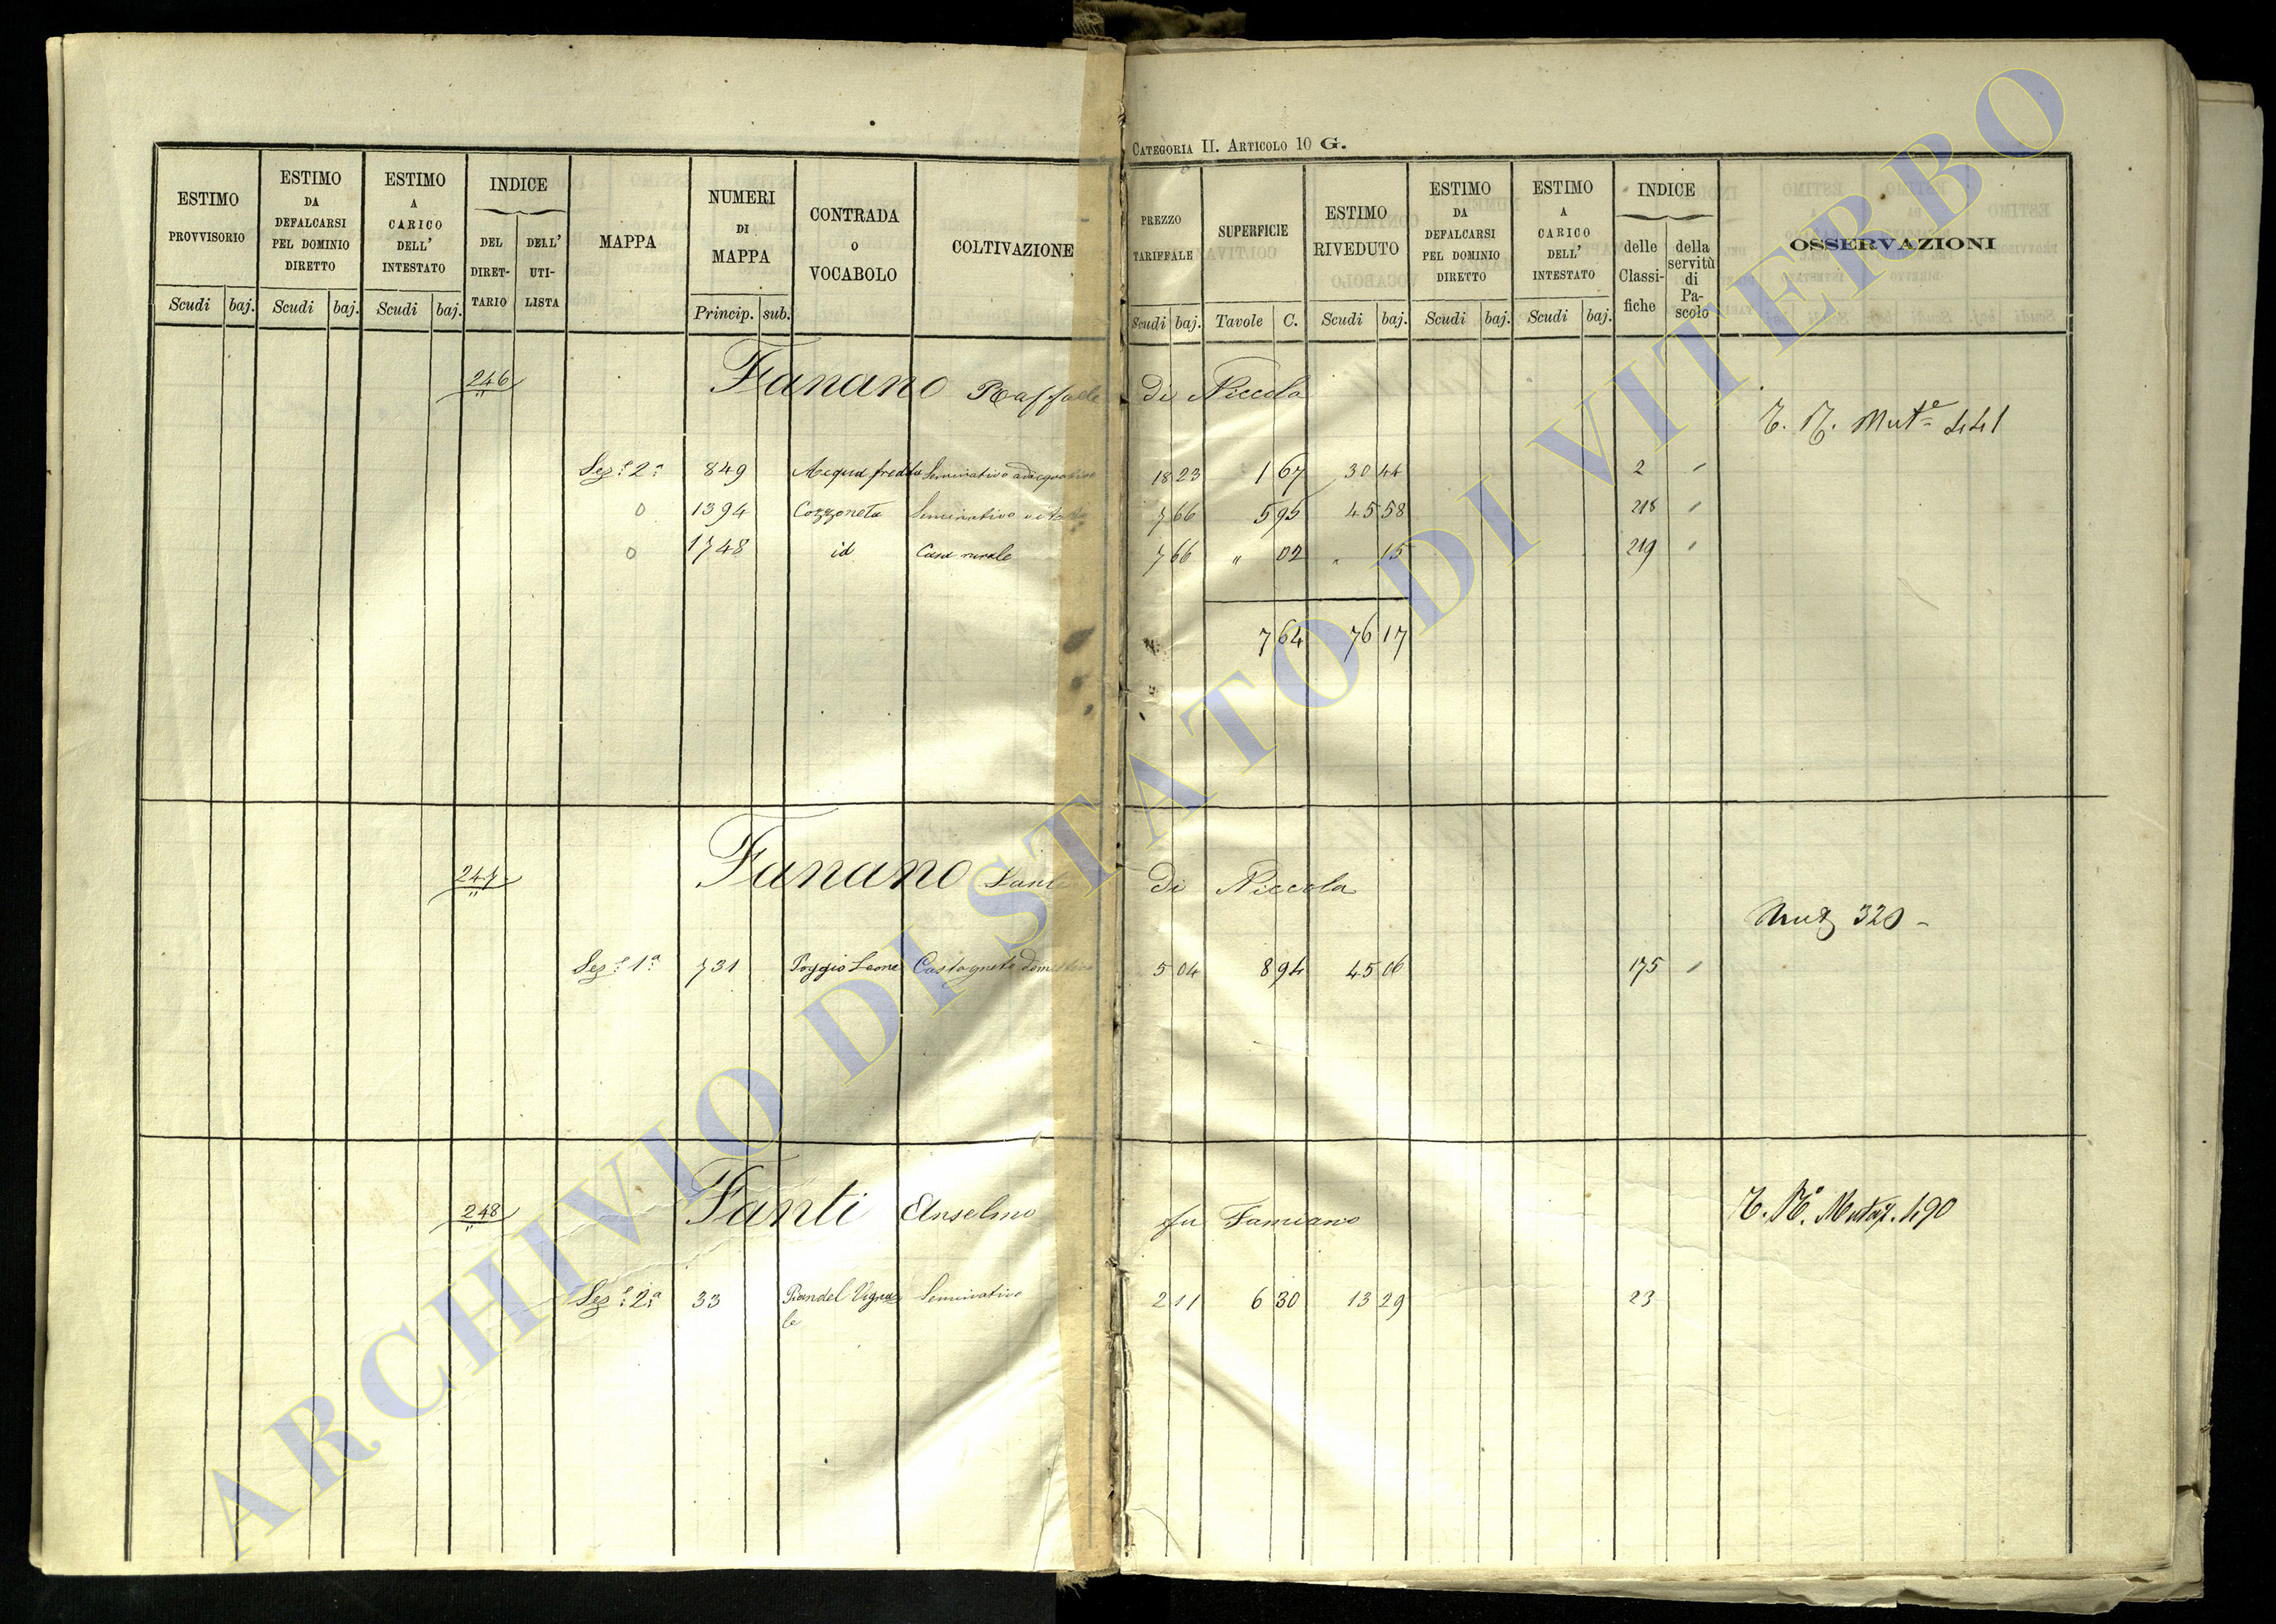 CATEGORIA II. ARTICOLO 10 G.
ESTIMO PROVVISORIO
Scudi baj.
ESTIMO DA DEFALCARSI PEL DOMINIO DIRETTO
Scudi baj.
ESTIMO A CARICO DELL' INTESTATO
Scudi baj.
INDICE
DEL DIRET-TARIO
DELL' UTI-LISTA
MAPPA
NUMERI DI MAPPA
Princip. sub.
CONTRADA O VOCABOLO
COLTIVAZIONE
PREZZO TARIFFALE
Scudi baj.
SUPERFICIE
Tavole C.
ESTIMO RIVEDUTO
Scudi baj.
ESTIMO DA DEFALCARSI PEL DOMINIO DIRETTO
Scudi baj.
ESTIMO A CARICO DELL' INTESTATO
Scudi baj.
INDICE
delle Classi-fiche
della servitù di Pa-scolo
OSSERVAZIONI
246 Fanano Raffaele di Niccola
441
Sez.e 2a 849 Acqua fredda Seminativo 18 23 1 67 30 44 2
1394 Cozzoneta Seminativo 7 66 5 95 45 58 218
1748 id Casa rurale 7 66 " 02 " 15 219
7 64 76 17
247 Fanano di Niccola
320
Sez.e 1a 731 Poggio Leone Castagneto domestico 5 04 8 94 45 06 175
248 Fanti Anselmo fu Famiano
490
Sez.e 2a 33 Piandel Vigna
le Seminativo 2 11 6 30 13 29 23
ARCHIVIO DI STATO DI VITERBO